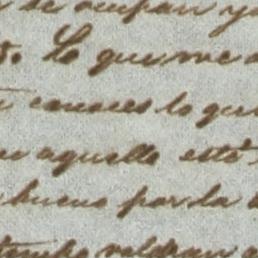 de ocupan y
Lo que me
conoces lo que
aquello esté
bueno por la
tiempo valdran